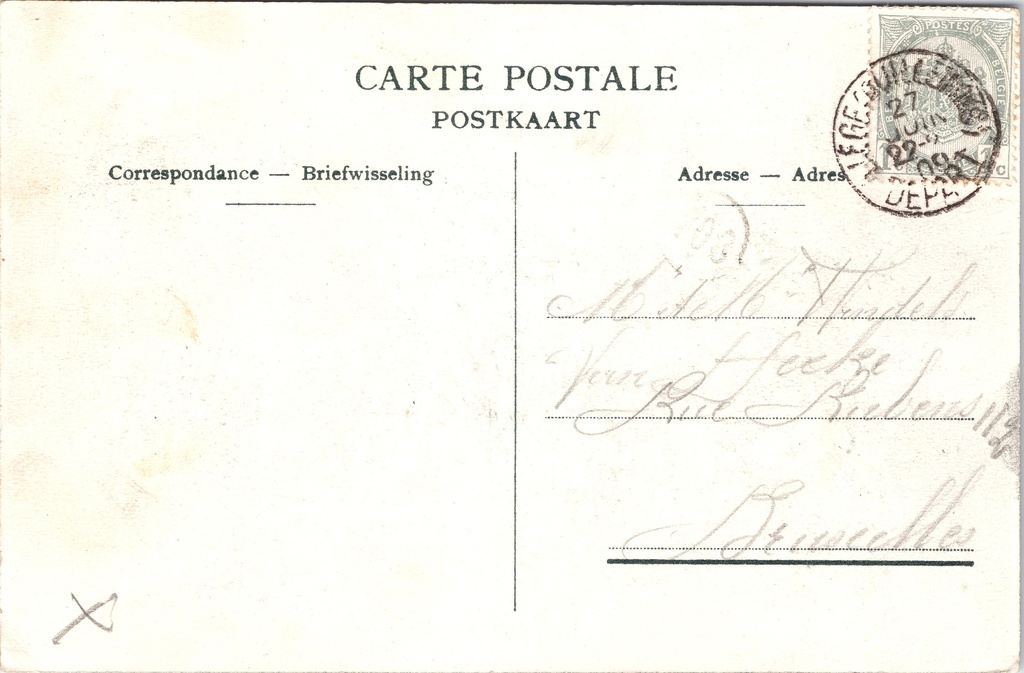 CARTE POSTALE
POSTKAART
Correspondance — Briefwisseling
Adresse — Adres
POSTES
BELGIE
LIEGE (GUILLEMINS)
27
JUIN
22-
09
DEPART
1 c
Van Hecke
Rue Rubens
Bruxelles